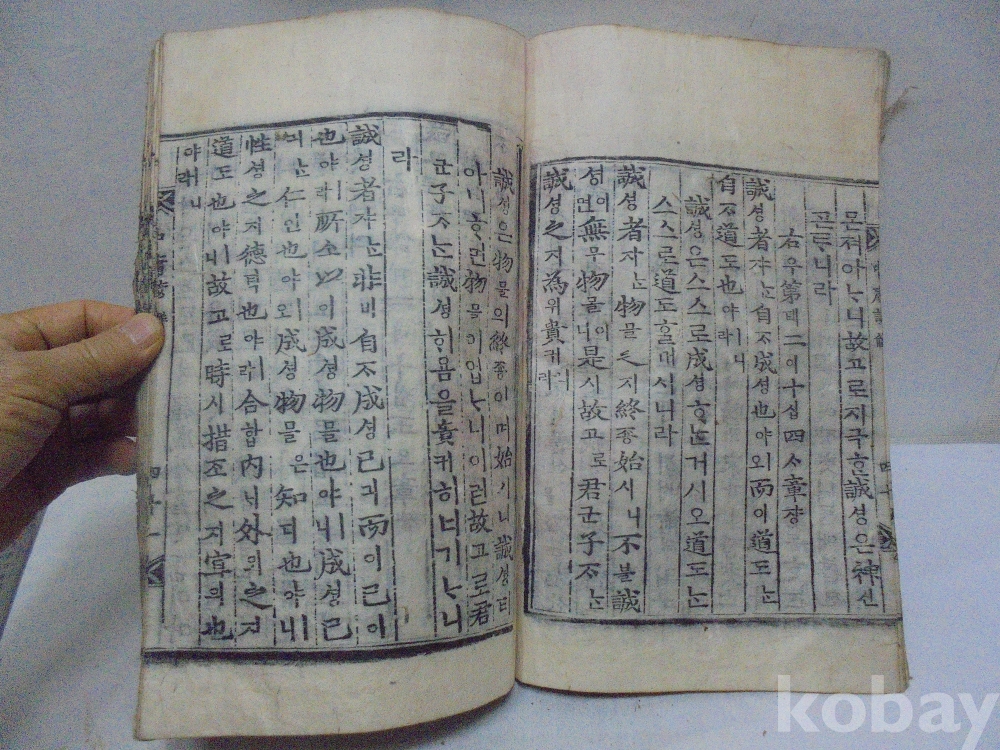 몬져아ᄂᆞ니故고로지극ᄒᆞᆫ誠셩은神신
ᄀᆞᆮᄐᆞ니라
右우第뎨二이十십四ᄉᆞ章쟝
誠셩者쟈ᄂᆞᆫ自ᄌᆞ成셩也야ㅣ오而이道도ᄂᆞᆫ
自ᄌᆞ道도也야ㅣ니라
誠셩은스스로成셩ᄒᆞᄂᆞᆫ거시오道도ᄂᆞᆫ
스스로道도홀ᄯᅢ시니라
誠셩者쟈ᄂᆞᆫ物믈之지終죵始시니不블誠
셩이면無무物믈이니是시故고로君군子ᄌᆞᄂᆞᆫ
誠셩之지爲위貴귀니라
誠셩은物믈의終죵이며始시니誠셩티
아니ᄒᆞ면物믈이업ᄂᆞ니이런故고로君
군子ᄌᆞᄂᆞᆫ誠셩ᄒᆞ욤을貴귀히너기ᄂᆞ니
라
誠셩者쟈ᄂᆞᆫ非비自ᄌᆞ成셩己긔而이已이
也야ㅣ라所소以이成셩物믈也야ㅣ니成셩己
긔ᄂᆞᆫ仁인也야ㅣ오成셩物믈은知디也야ㅣ니
性셩之지德덕也야ㅣ라合합內ᄂᆡ外외之지
道도也야ㅣ니故고로時시措조之지宜의也
야ㅣ니라
kobay